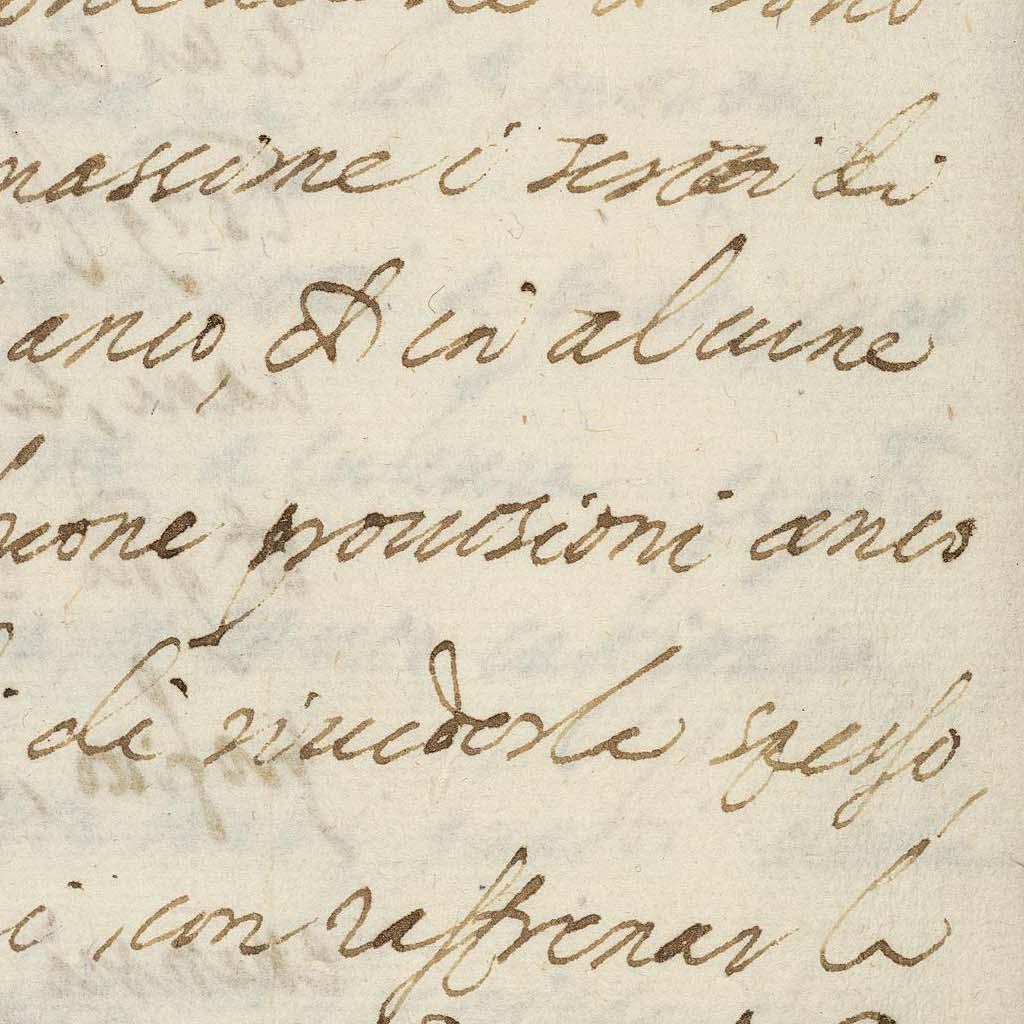 massime i sestieri di
anco, et in alcune
provisioni anco
di rivederla spesso,
i, con raffrenar la